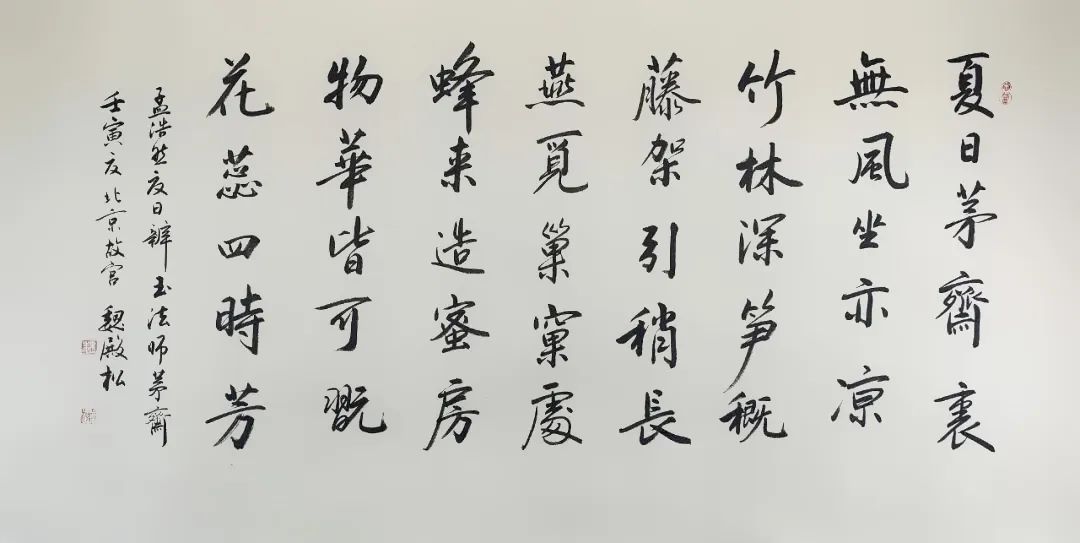 夏日茅齋裏
無風坐亦凉
竹林深笋穊
藤架引稍長
燕覓巢窠處
蜂来造蜜房
物華皆可翫
花蕊四時芳
孟浩然夏日辨玉法師茅齋
壬寅夏北京故宫 魏殿松